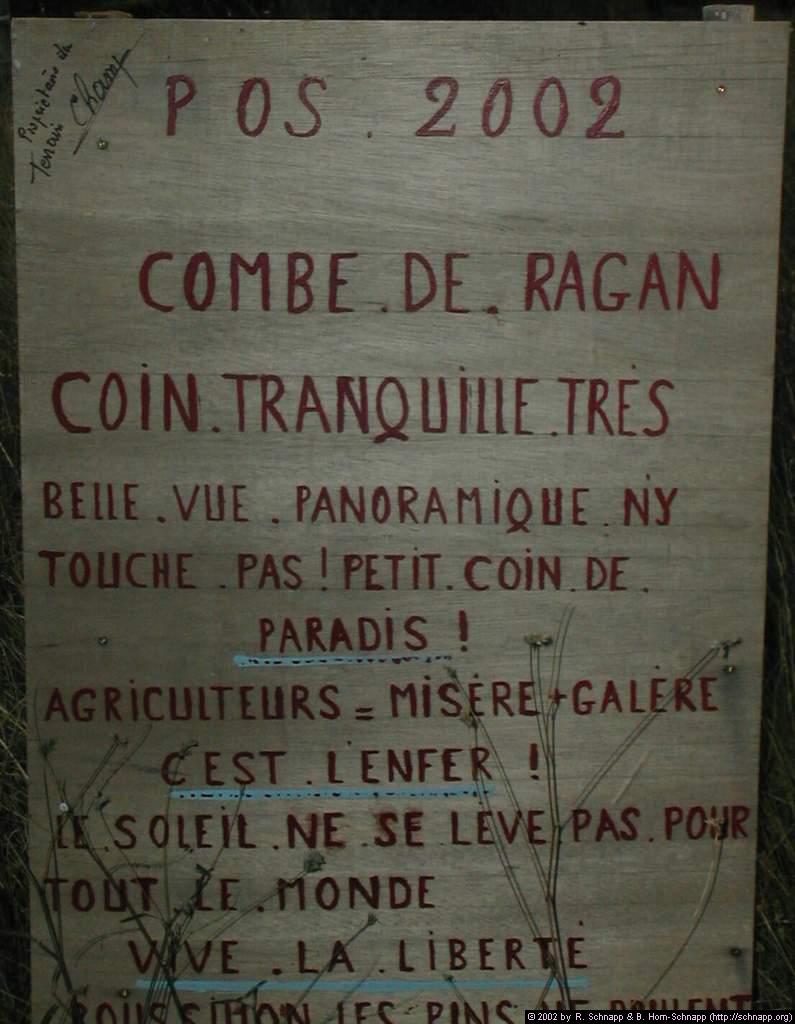 Propriétaire du
Terrain
P OS . 2002
COMBE . DE . RAGAN
COIN . TRANQUILLE . TRÈS
BELLE . VUE . PANORAMIQUE . N'Y
TOUCHE . PAS ! PETIT . COIN . DE .
PARADIS !
AGRICULTEURS = MISÈRE + GALÈRE
C'EST . L'ENFER !
LE . SOLEIL . NE . SE . LEVE . PAS . POUR
TOUT . LE . MONDE
VIVE . LA . LIBERTÉ
LES PINS NE
© 2002 by R. Schnapp & B. Horn-Schnapp (http://schnapp.org)